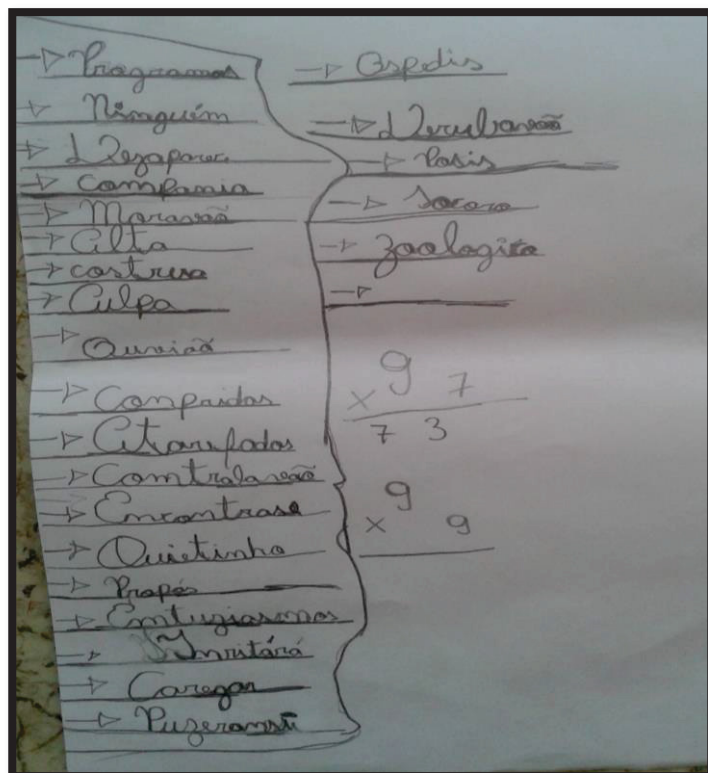 Programas
Ninguém
Dezaparec.
Compania
Moravaõ
Alta
costresa
Culpa
Ouviaõ
Conpridas
Atarefados
Comtralavaõ
Encontrase
Quietinho
Propés
Emtuziasmos
Inritárá
Caregar
Puzeramsi
Ospedis
Derubavaõ
Posis
Socoro
Zoologico
9 7
x
7 3
9
x 9